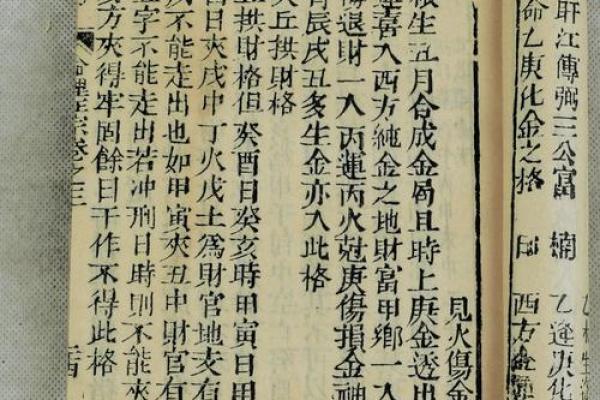 江傅弼三公富 楠 乙逢庚化
命乙庚化金之格 西方金
見火傷金
根生五月合成金局且時上庚金透出
運喜入西方純金之地財富甲鄉一入
傷退財一入丙運丙火尅庚傷損金神
酉辰戌丑多生金亦入此格
夾丘拱財格
丘拱財格但癸酉日癸亥時甲寅日甲
酉日夾戌中丁火戊土爲財官地支有
戌不能走出也如甲寅夾丑中財官有
丑字不能走出若冲刑日時則不能夾
亥方夾得牢固餘日干作不得此格
命理正宗卷之三